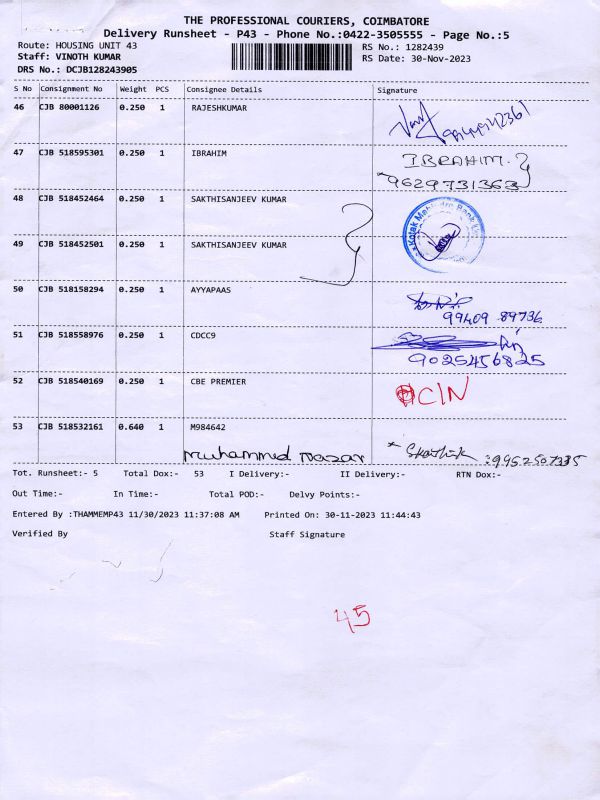 THE PROFESSIONAL COURIERS, COIMBATORE
Delivery Runsheet - P43 - Phone No.:0422-3505555 - Page No.:5
Route: HOUSING UNIT 43 RS No.: 1282439
Staff: VINOTH KUMAR RS Date: 30-Nov-2023
DRS No.: DCJB128243905
S No Consignment No Weight PCS Consignee Details Signature
46 CJB 80001126 0.250 1 RAJESHKUMAR
47 CJB 518595301 0.250 1 IBRAHIM IBRAHIM.
9629731363
48 CJB 518452464 0.250 1 SAKTHISANJEEV KUMAR
Kotak Mahindra Bank
49 CJB 518452501 0.250 1 SAKTHISANJEEV KUMAR
50 CJB 518158294 0.250 1 AYYAPAAS
99409 89736
51 CJB 518558976 0.250 1 CDCC9
9025456825
52 CJB 518540169 0.250 1 CBE PREMIER CIN
53 CJB 518532161 0.640 1 M984642
Muhammed Nazar 9952507335
Tot. Runsheet:- 5 Total Dox:- 53 I Delivery:- II Delivery:- RTN Dox:-
Out Time:- In Time:- Total POD:- Delvy Points:-
Entered By :THAMMEMP43 11/30/2023 11:37:08 AM Printed On: 30-11-2023 11:44:43
Verified By Staff Signature
45